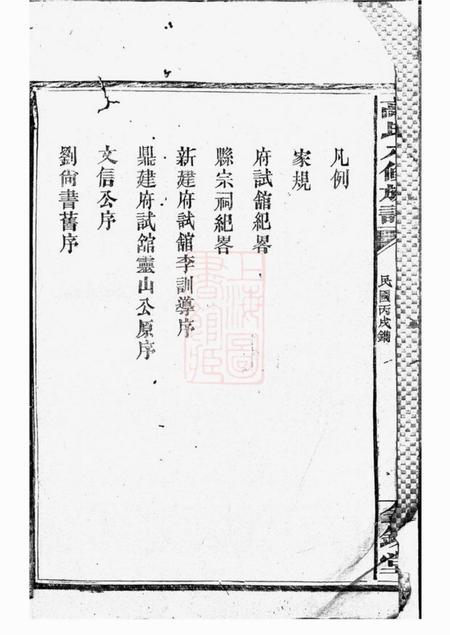 民國丙戌鐫
凡例
家規
府試舘紀畧
縣宗祠紀畧
新建府試舘李訓導序
鼎建府試舘靈山公原序
文信公序
劉尙書舊序
上海圖書館藏